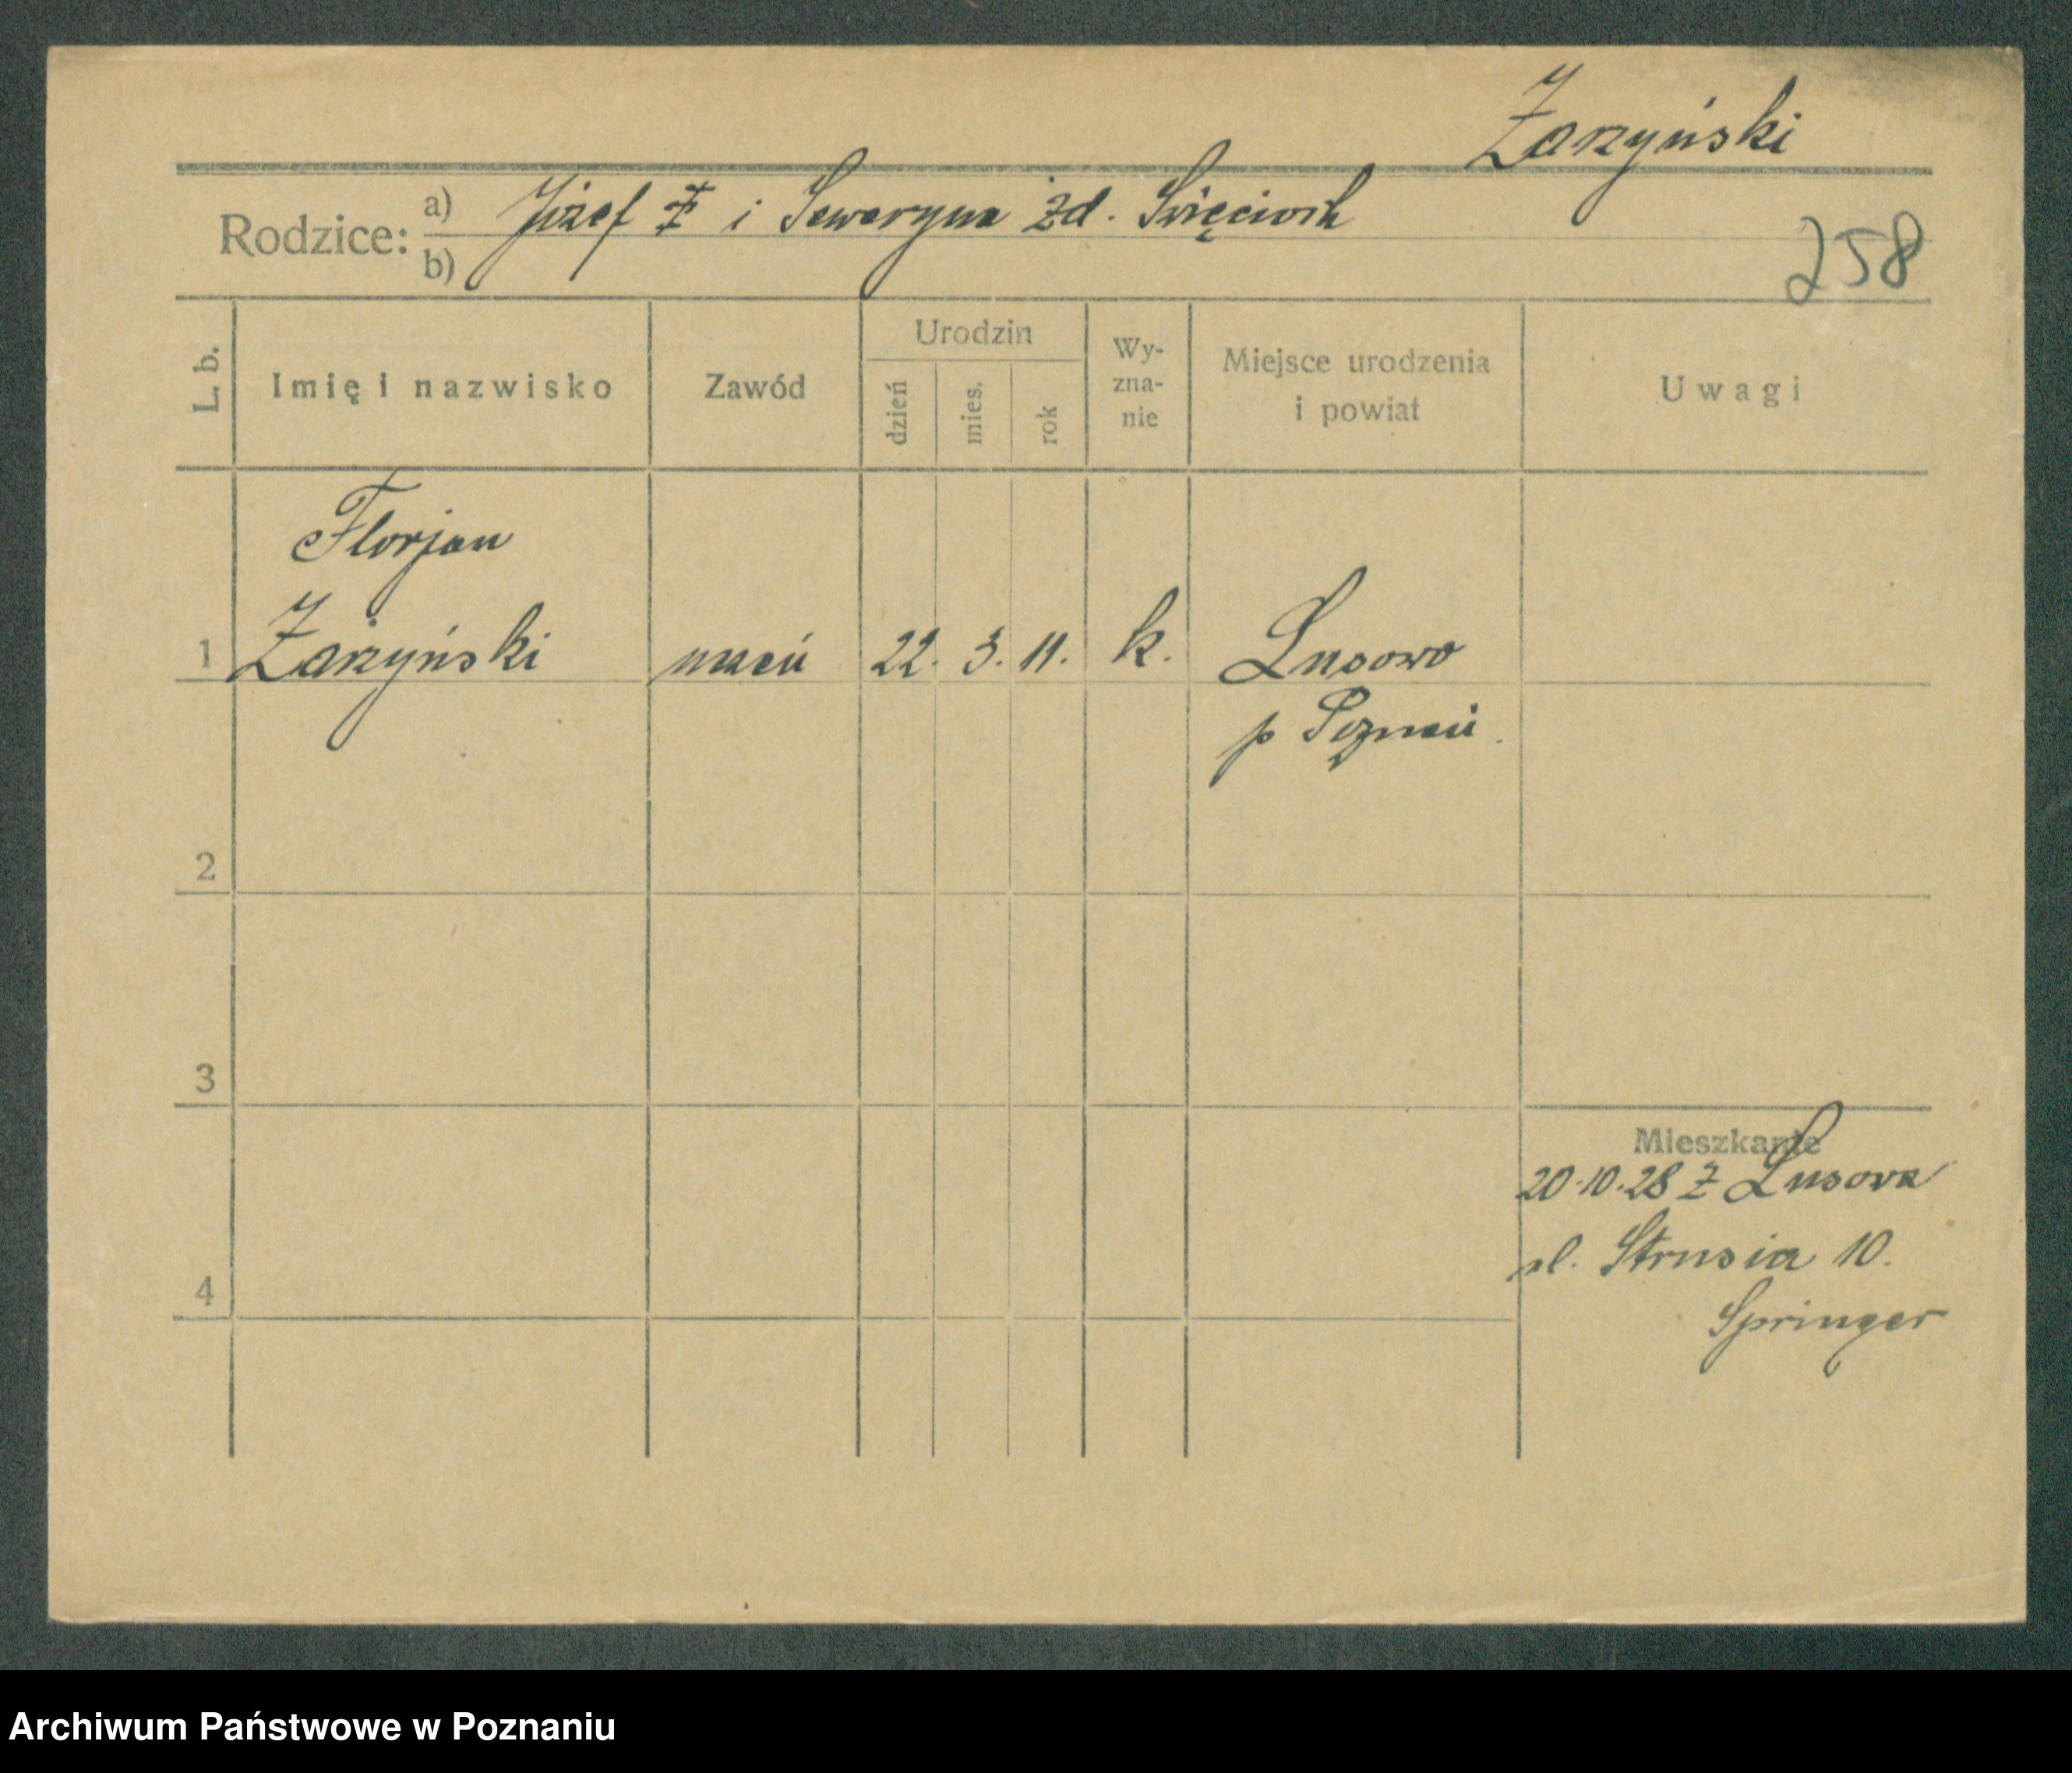 Zarzyński
Rodzice: a) Józef Z i Seweryna żd. Święcioch
b)
258
L. b. Imię i nazwisko Zawód Urodzin dzień mies. rok Wy-zna-nie Miejsce urodzenia i powiat Uwagi
Florjan
1 Zarzyński uczeń 22. 3. 11. k. Lusowo
p Poznań.
2
3
Mieszkanie
20.10.28 z Lusowa
ul. Strusia 10.
4
Springer
Archiwum Państwowe w Poznaniu